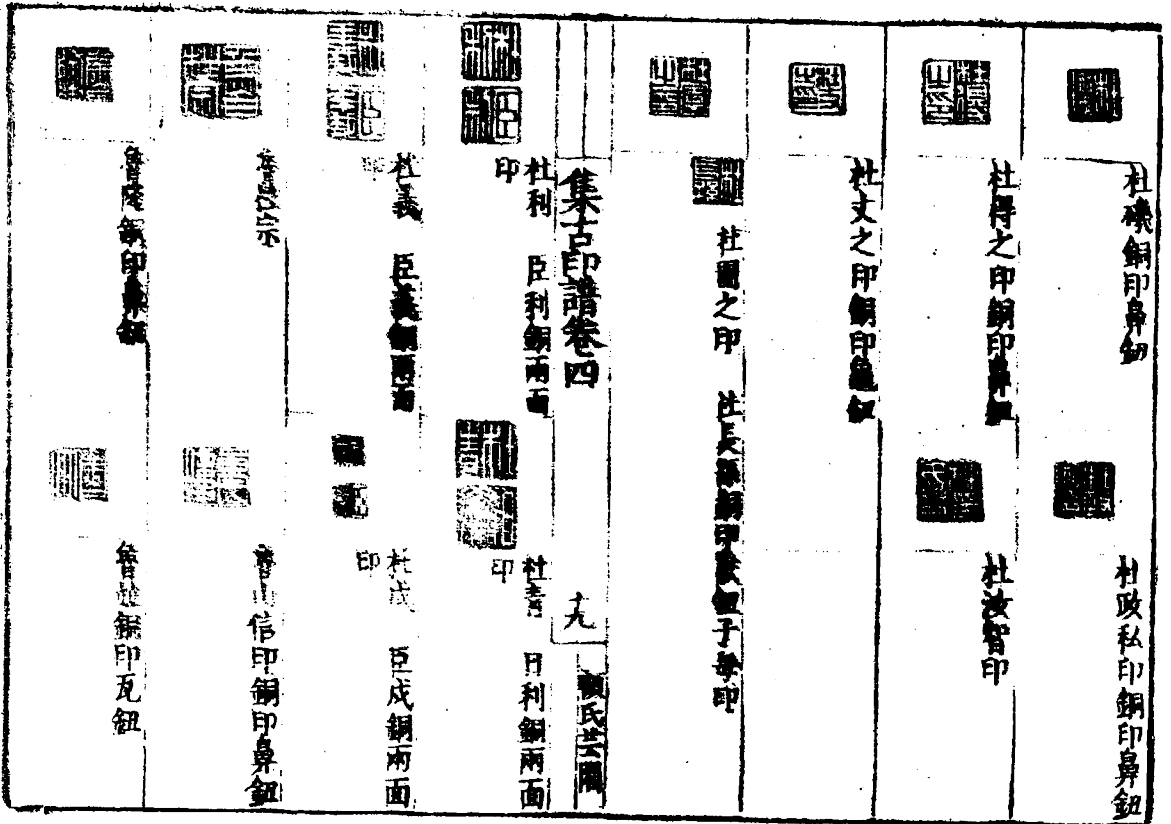 杜磯銅印鼻鈕
杜政私印銅印鼻鈕
杜得之印銅印鼻鈕
杜汝智印
杜丈之印銅印龜鈕
杜圖之印 杜長孫銅印鈕子母印
集古印譜卷四
十九
顧氏芸閣
杜利 臣利銅兩面印
杜青 日利銅兩面印
杜義 臣義銅兩面印
杜戍 臣戍銅兩面印
信印銅印鼻鈕
魯隆銅印鼻鈕
魯 銅印瓦鈕